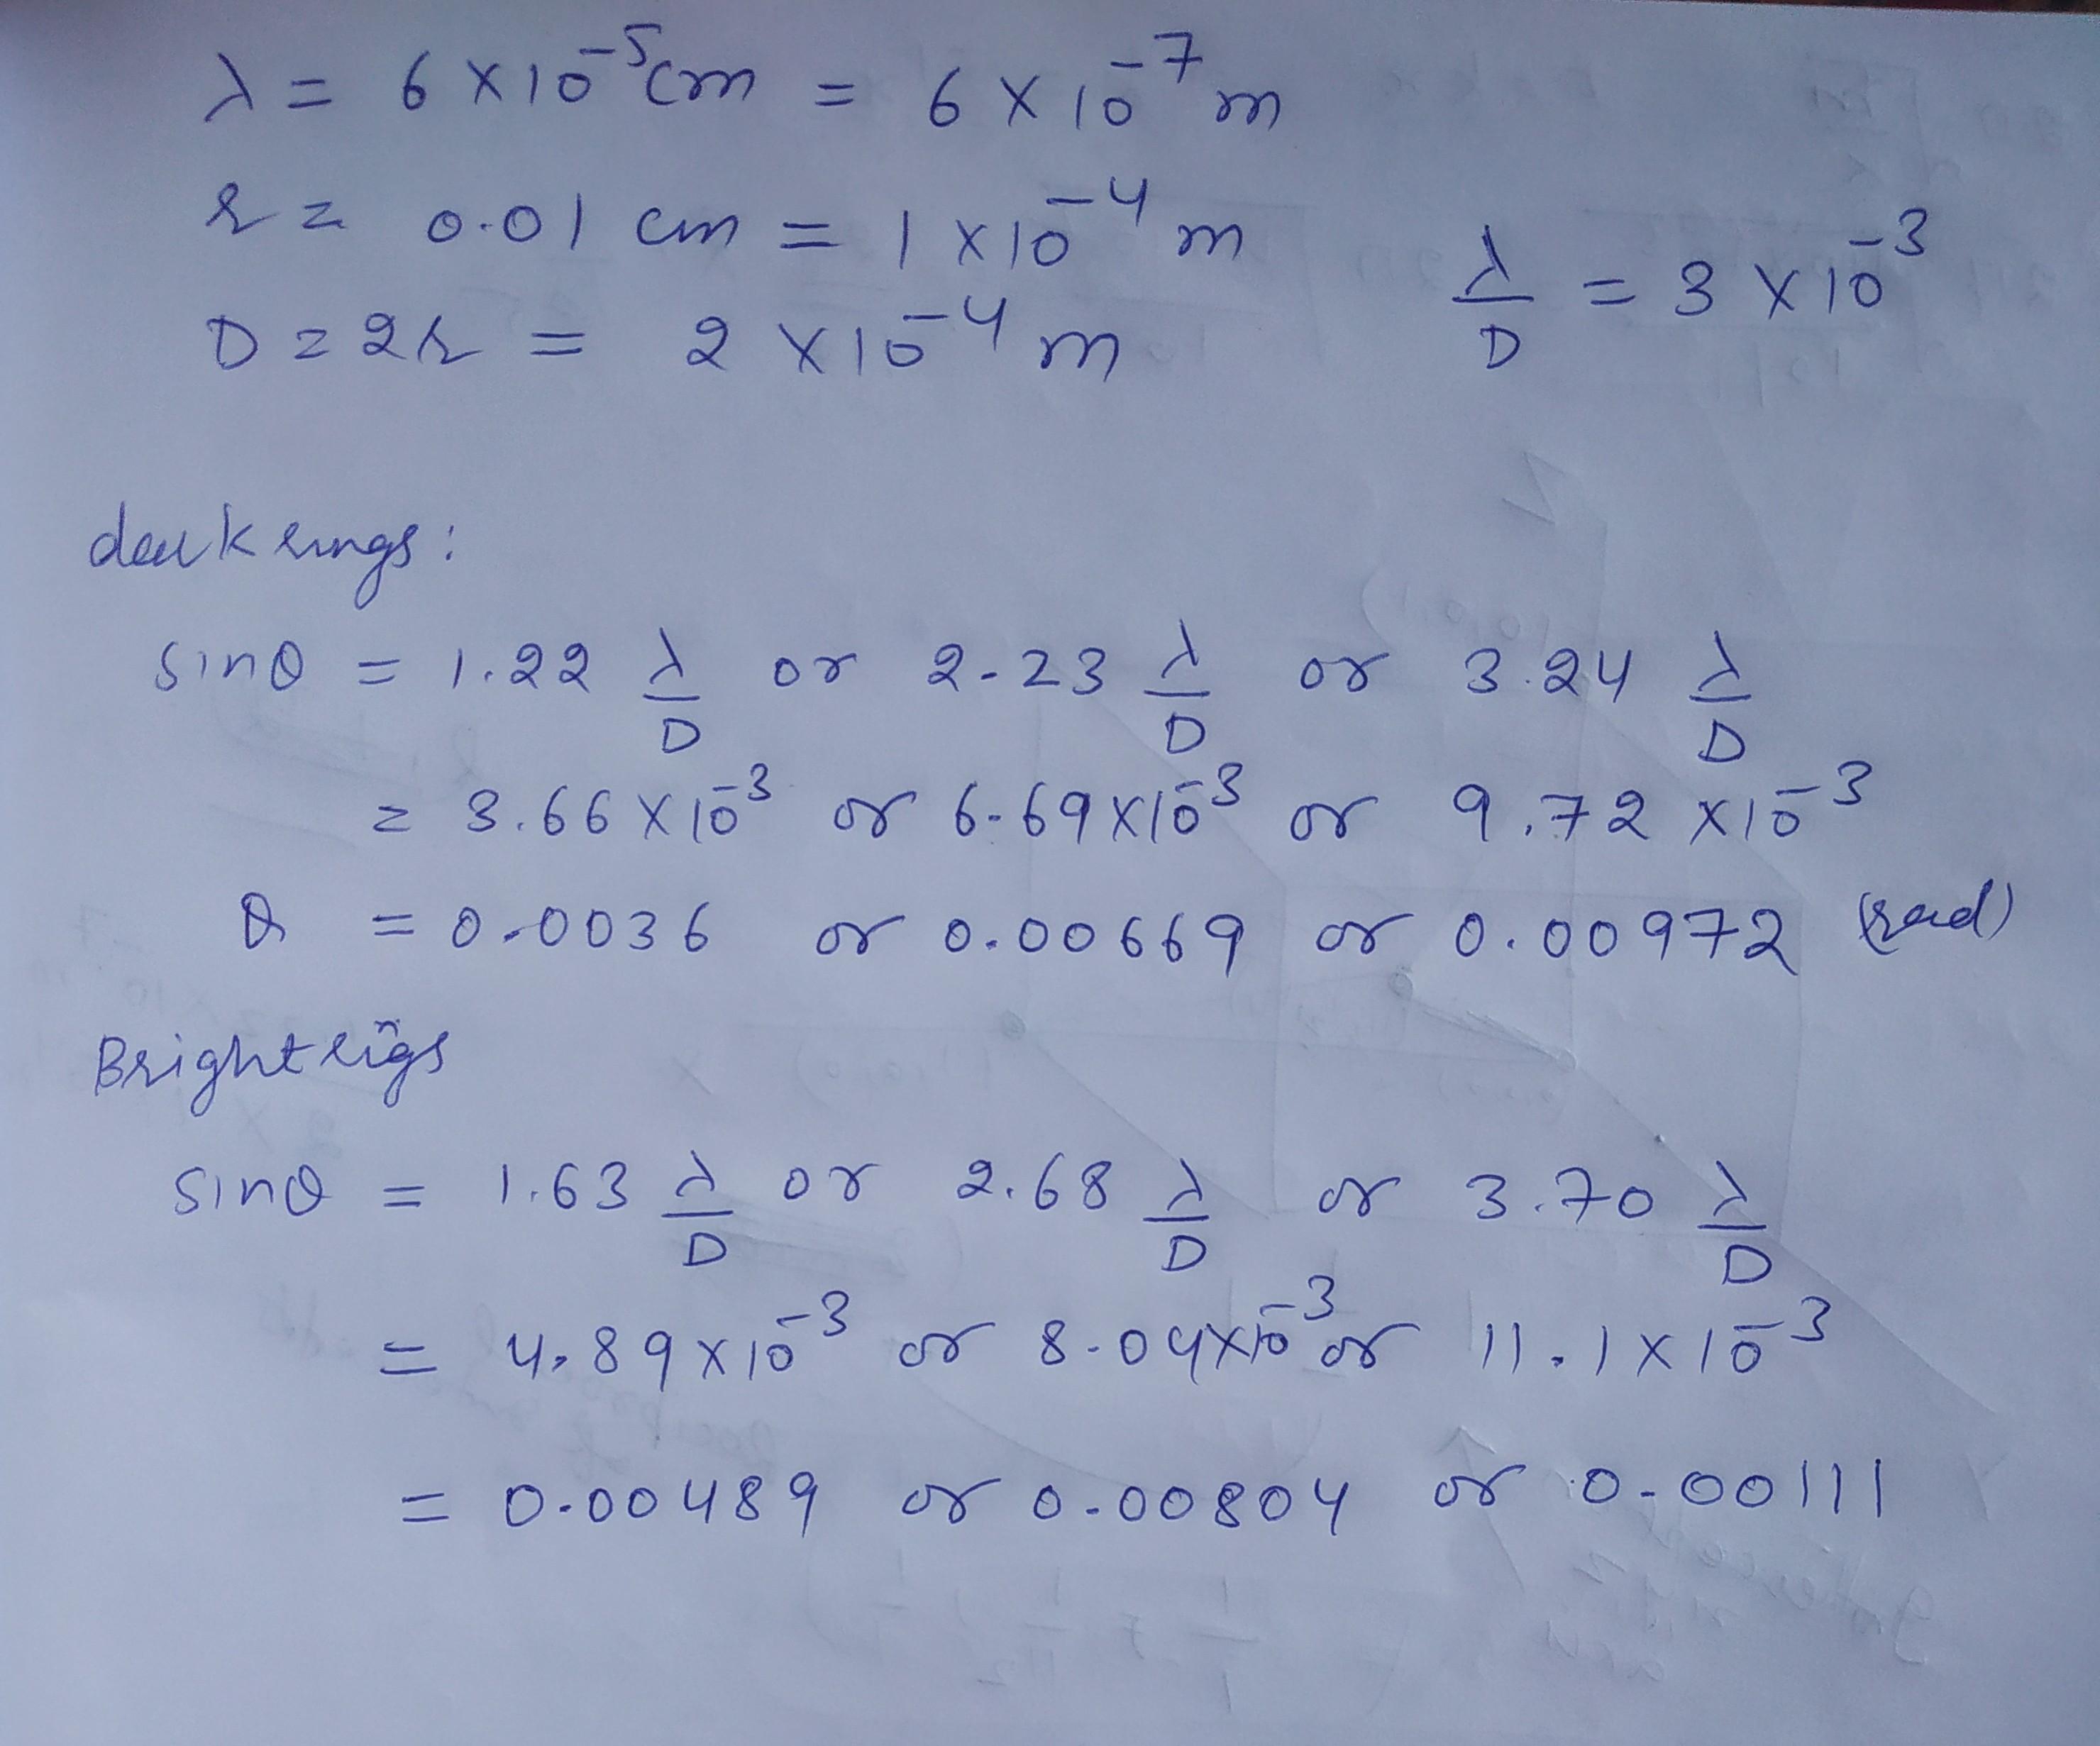 λ = 6 × 10⁻⁵ cm = 6 × 10⁻⁷ m
r = 0.01 cm = 1 × 10⁻⁴ m
D = 2r = 2 × 10⁻⁴ m
λ/D = 3 × 10⁻³
dark rings:
sinθ = 1.22 λ/D or 2.23 λ/D or 3.24 λ/D
= 3.66 × 10⁻³ or 6.69 × 10⁻³ or 9.72 × 10⁻³
θ = 0.0036 or 0.00669 or 0.00972 (rad)
Bright rigs
sinθ = 1.63 λ/D or 2.68 λ/D or 3.70 λ/D
= 4.89 × 10⁻³ or 8.04 × 10⁻³ or 11.1 × 10⁻³
= 0.00489 or 0.00804 or 0.00111